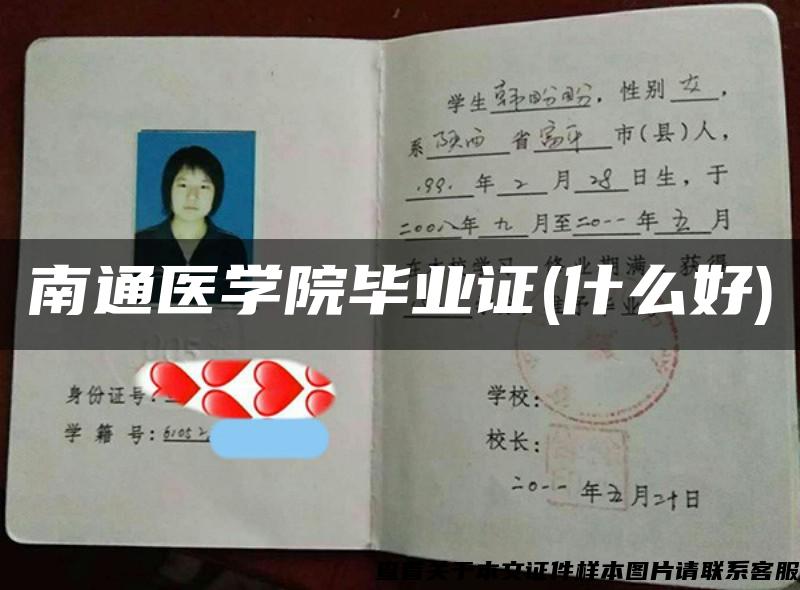 学生韩盼盼，性别女，
系陕西省富平市(县)人，
1991年2月28日生，于
二00八年九月至二0一一年五月
在本校学习，修业期满，获得
南通医学院毕业证(什么好)
身份证号:
学籍号:61052
学校:
校长:
二0一一年五月二十日
查看关于本文证件样本图片请联系客服